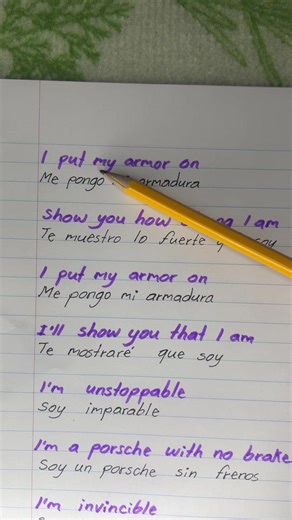 I put my armor on
Me pongo mi armadura
Show you how I am
Te muestro lo fuerte
I put my armor on
Me pongo mi armadura
I'll show you that I am
Te mostraré que soy
I'm unstoppable
Soy imparable
I'm a porsche with no brake
Soy un porsche sin frenos
I'm invincible